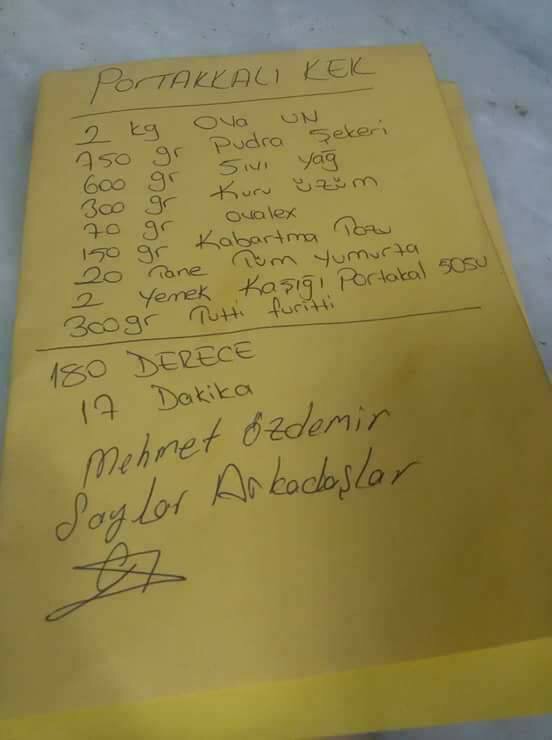 PORTAKKALI KEK
2 kg Ova UN
750 gr Pudra Şekeri
600 gr Sıvı yağ
300 gr Kuru üzüm
70 gr ovalex
150 gr Kabartma Tozu
20 Tane Tüm Yumurta
2 Yemek Kaşığı Portakal SOSU
300gr Tutti furitti
180 DERECE
17 Dakika
Mehmet özdemir
Saylar Arkadaşlar